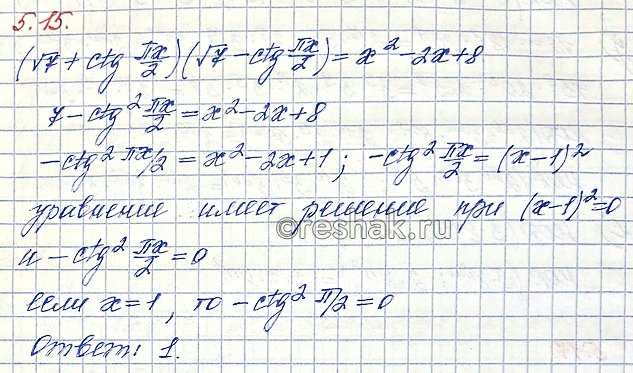 5.15.
(√7 + ctg πx/2)(√7 - ctg πx/2) = x² - 2x + 8
7 - ctg² πx/2 = x² - 2x + 8
- ctg² πx/2 = x² - 2x + 1; - ctg² πx/2 = (x - 1)²
уравнение имеет решение при (x-1)² = 0
и - ctg² πx/2 = 0
©reshak.ru
если x = 1, то - ctg² π/2 = 0
Ответ: 1.